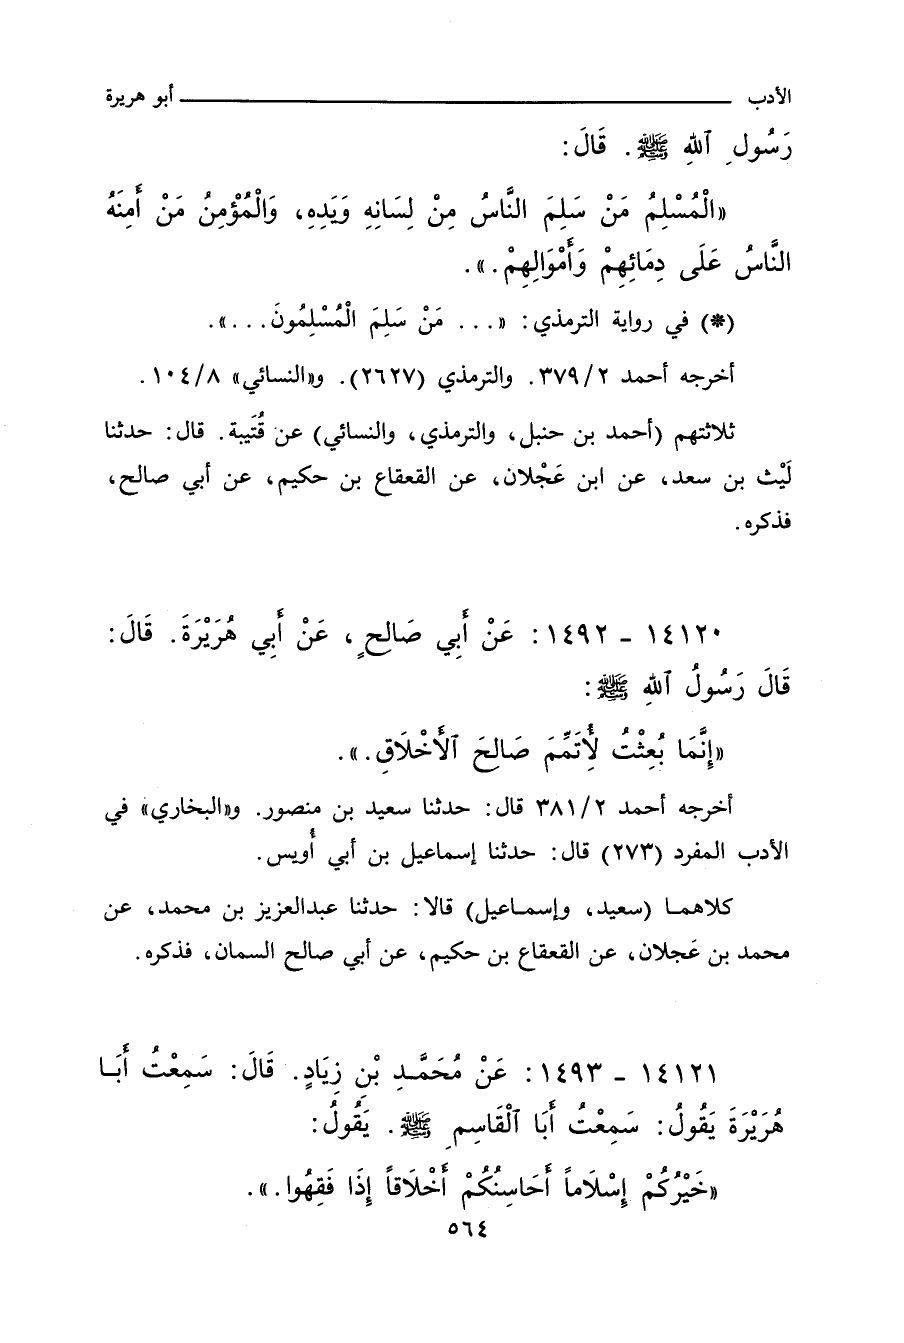 الأدب ــــــــــــــــــــ أبو هريرة
رَسُولِ ٱللهِ ﷺ. قَالَ:
«الْمُسْلِمُ مَنْ سَلِمَ النَّاسُ مِنْ لِسَانِهِ وَيَدِهِ، وَالْمُؤْمِنُ مَنْ أَمِنَهُ
النَّاسُ عَلَى دِمَائِهِمْ وَأَمْوَالِهِمْ.».
(*) في رواية الترمذي: «... مَنْ سَلِمَ الْمُسْلِمُونَ...».
أخرجه أحمد ٣٧٩/٢. والترمذي (٢٦٢٧). و«النسائي» ١٠٤/٨.
ثلاثتهم (أحمد بن حنبل، والترمذي، والنسائي) عن قُتَيبة. قال: حدثنا
لَيْث بن سعد، عن ابن عَجْلان، عن القعقاع بن حكيم، عن أبي صالح،
فذكره.
١٤١٢٠ - ١٤٩٢: عَنْ أَبِي صَالِحٍ، عَنْ أَبِي هُرَيْرَةَ. قَالَ:
قَالَ رَسُولُ ٱللهِ ﷺ:
«إِنَّمَا بُعِثْتُ لِأُتَمِّمَ صَالِحَ ٱلأَخْلَاقِ.».
أخرجه أحمد ٣٨١/٢ قال: حدثنا سعيد بن منصور. و«البخاري» في
الأدب المفرد (٢٧٣) قال: حدثنا إسماعيل بن أبي أُويس.
كلاهما (سعيد، وإسماعيل) قالا: حدثنا عبدالعزيز بن محمد، عن
محمد بن عَجلان، عن القعقاع بن حكيم، عن أبي صالح السمان، فذكره.
١٤١٢١ - ١٤٩٣: عَنْ مُحَمَّدِ بْنِ زِيَادٍ. قَالَ: سَمِعْتُ أَبَا
هُرَيْرَةَ يَقُولُ: سَمِعْتُ أَبَا ٱلْقَاسِمِ ﷺ. يَقُولُ:
«خَيْرُكُمْ إِسْلَاماً أَحَاسِنُكُمْ أَخْلَاقاً إِذَا فَقِهُوا.».
٥٦٤